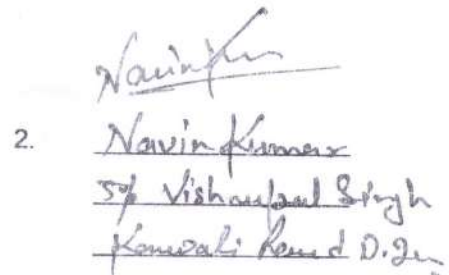 Navin Ku
2. Navin Kumar
S/o Vishanpal Singh
Kanwali Road D.Dn